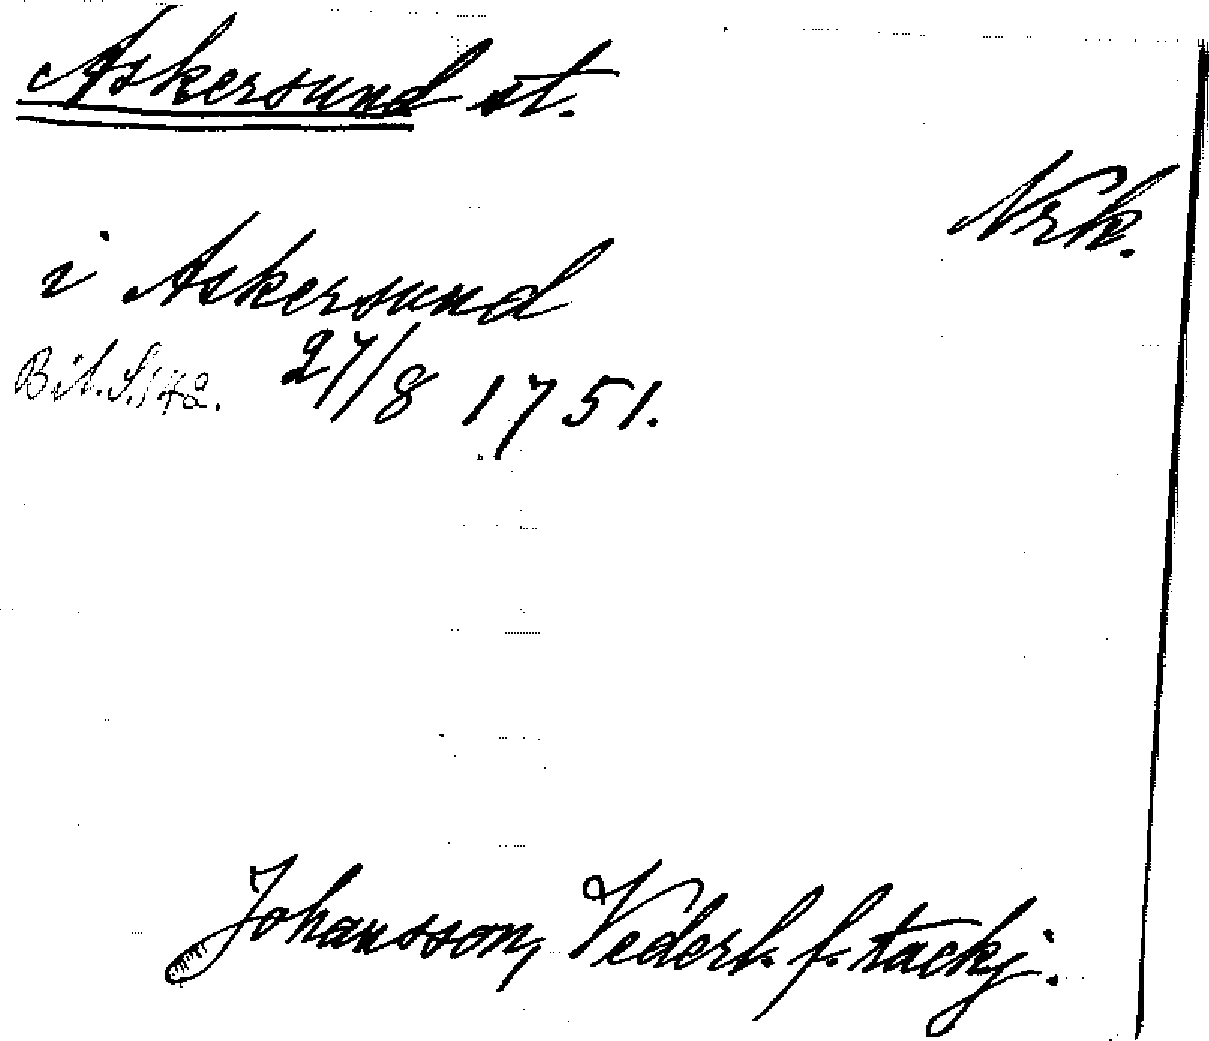 Askersund st.
Nrk.
i Askersund
Bil. S. 142. 27/8 1751.
Johansson, Vederl. f. tackj.